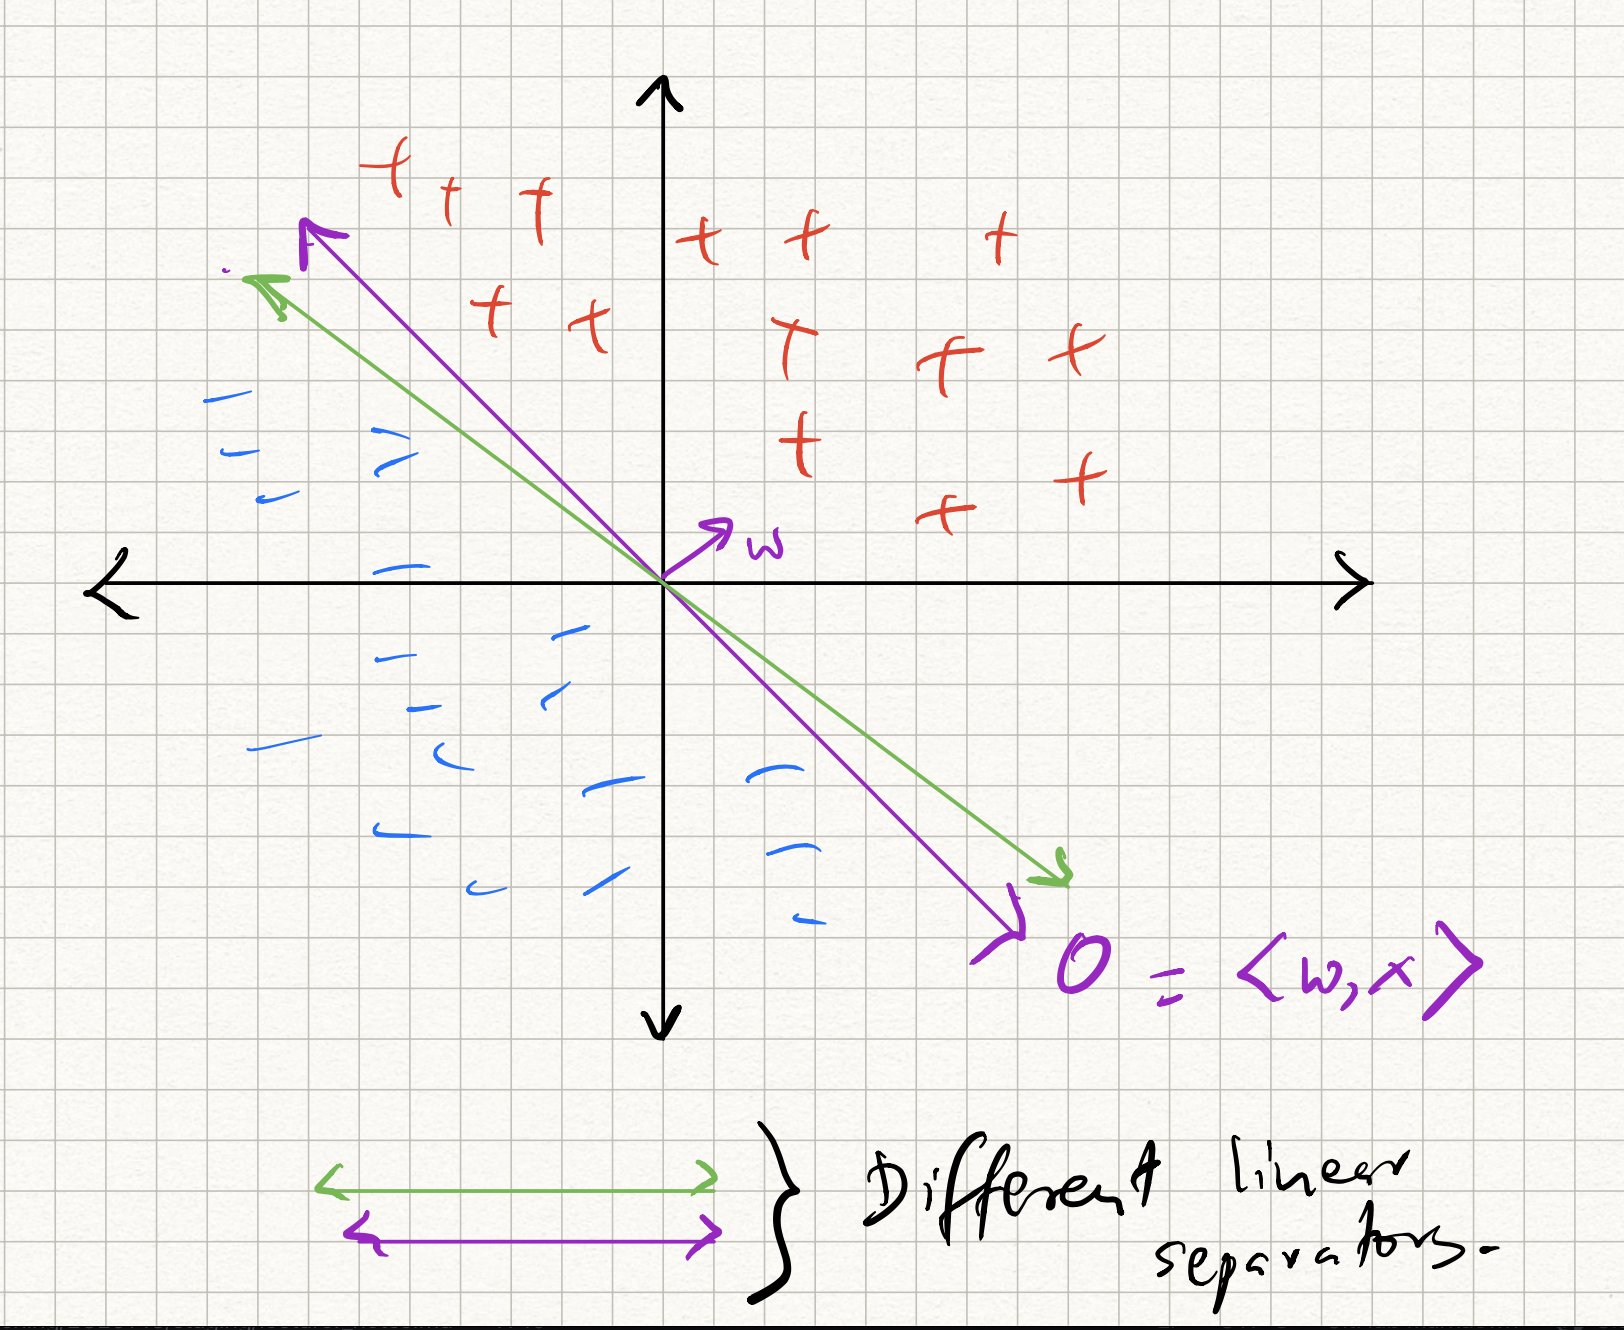 w
0 = <w, x>
Different linear
separators.